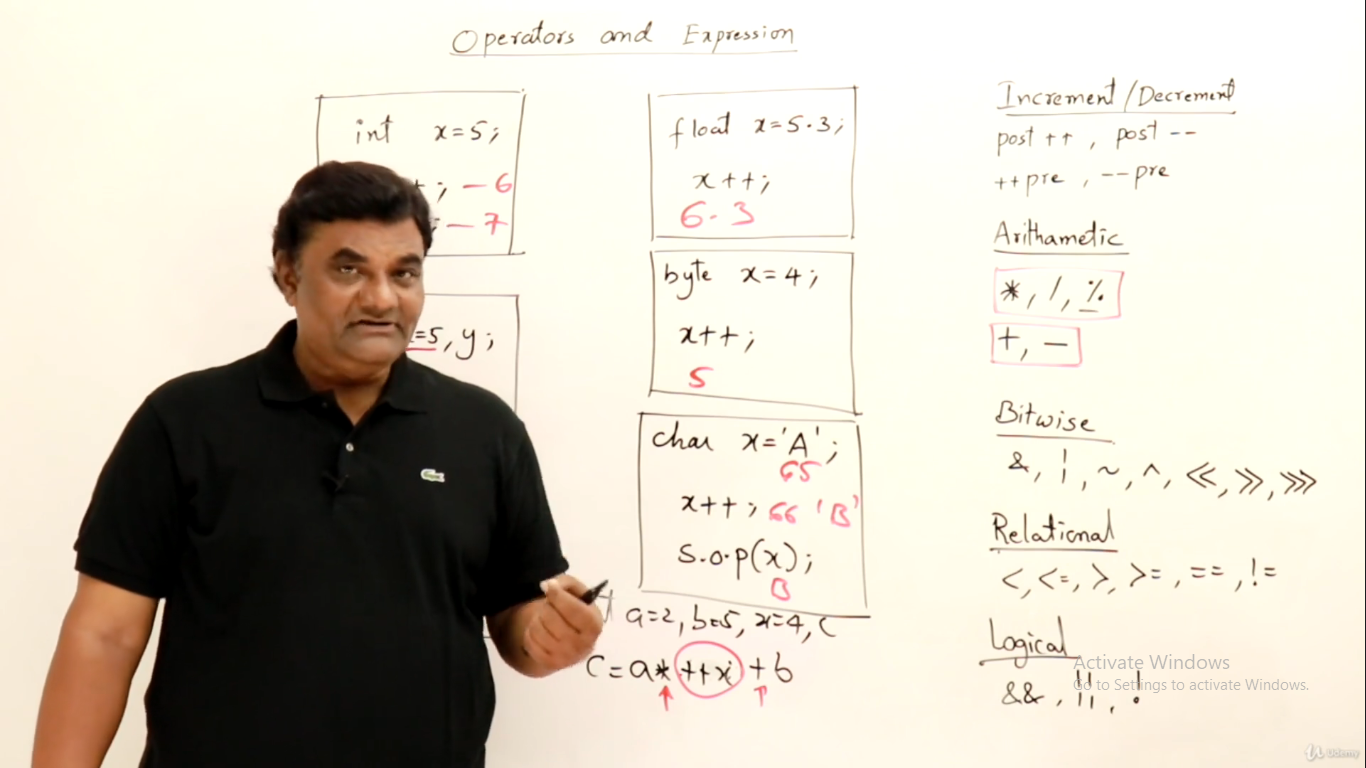 Operators and Expression
int x=5;
; – 6
– 7
=5, y;
float x=5.3;
x++;
6.3
byte x=4;
x++;
5
char x='A';
65
x++; 66 'B'
S.o.p(x);
B
a=2, b=5, x=4, C
C=a*++x+b
Increment/Decrement
post ++ , post --
++pre , --pre
Arithametic
*, /, %
+, –
Bitwise
&, ¦, ~, ^, <<, >>, >>>
Relational
<, <=, >, >=, ==, !=
Logical
&&, ||, !
Activate Windows
Go to Settings to activate Windows.
Udemy